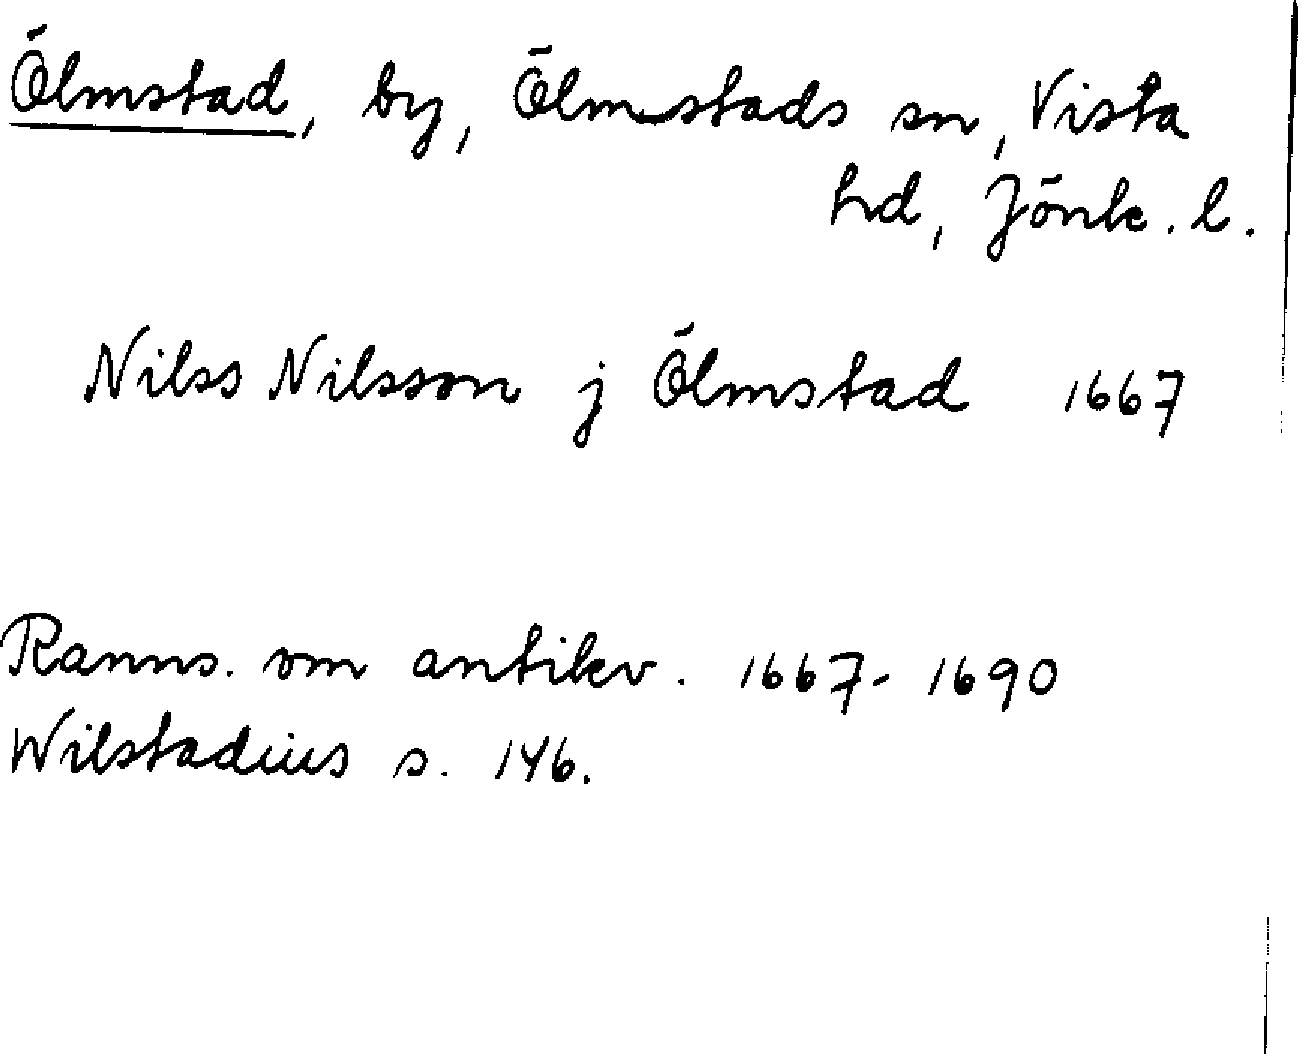 Ölmstad, by, Ölmstads sn, Vista
hd, Jönk. l.
Nilss Nilsson j Ölmstad 1667
Ranns. om antikv. 1667-1690
Wilstadius s. 146.